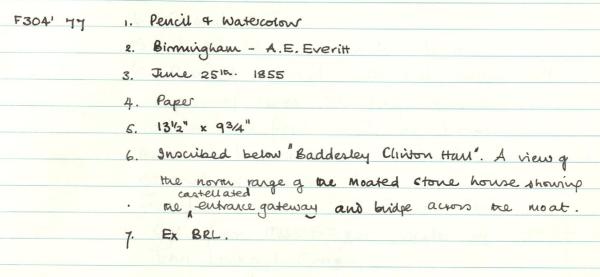 F304' 77 1. Pencil & Watercolour
2. Birmingham - A.E. Everitt
3. June 25th. 1855
4. Paper
5. 13½" x 9¾"
6. Inscribed below "Baddesley Clinton Hall". A view of
the north range of the moated stone house showing
castellated
the ^ entrance gateway and bridge across the moat.
7. Ex BRL.